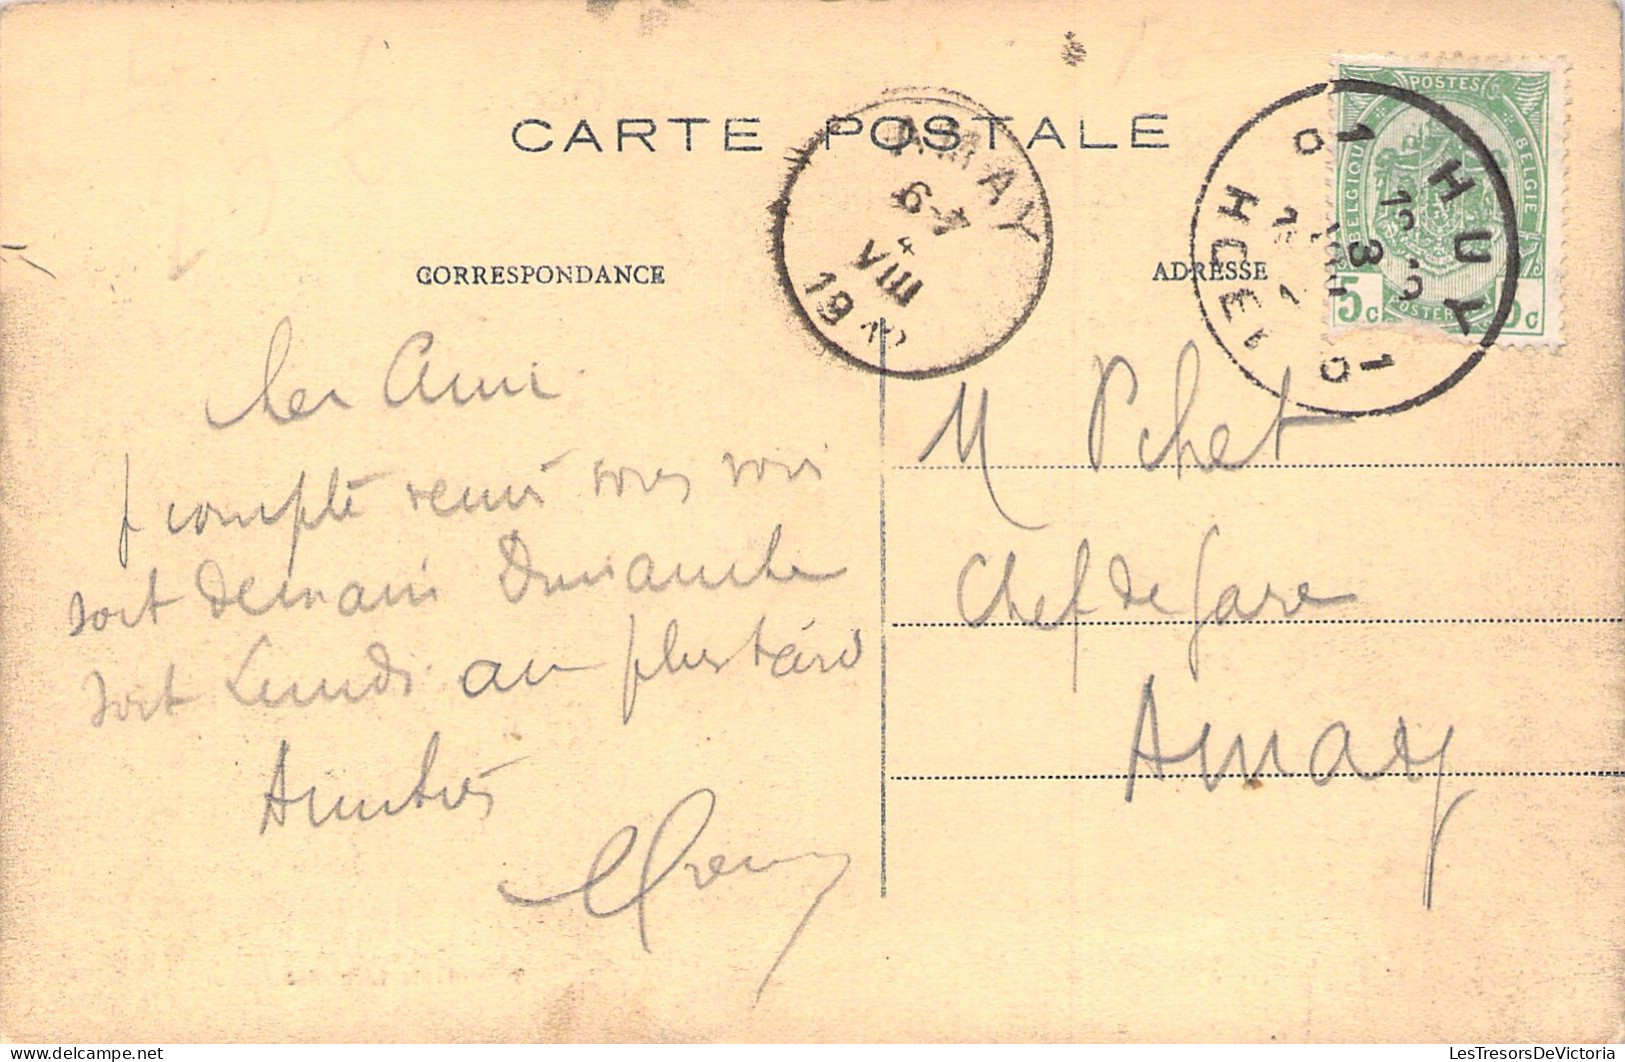 CARTE POSTALE
CORRESPONDANCE
ADRESSE
AMAY
6-7
4
VIII
19
HUY
1D
3
VIII
POSTES
BELGIQUE
BELGIE
5c
5c
Cher Ami
compte venir vous voir
soit demain Dimanche
soit Lundi au plus tard
Amitiés
M Pchet
Chef de Gare
Amay
LesTresorsDeVictoria